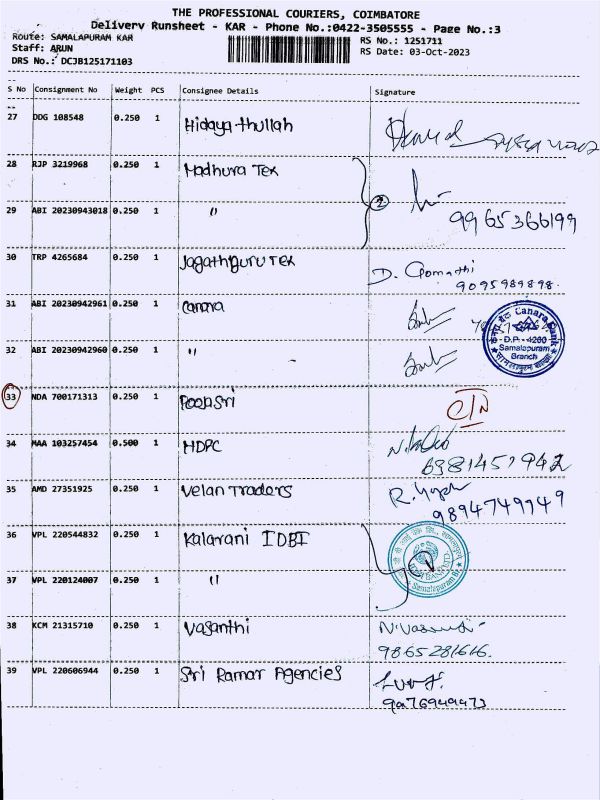 THE PROFESSIONAL COURIERS, COIMBATORE
Delivery Runsheet - KAR - Phone No.:0422-3505555 - Page No.:3
Route: SAMALAPURAM KAR
Staff: ARUN
DRS No.: DCJB125171103
RS No.: 1251711
RS Date: 03-Oct-2023
S No Consignment No Weight PCS Consignee Details Signature
27 DDG 108548 0.250 1 Hidayathullah
28 RJP 3219968 0.250 1 Madhura Tex
2
29 ABI 20230943018 0.250 1 "
9965366199
30 TRP 4265684 0.250 1 Jagathguru Tex
D. Gomathi
9095989898
31 ABI 20230942961 0.250 1 Canara
Canara Bank
D.P.- 4260
Samalapuram
Branch
32 ABI 20230942960 0.250 1 "
33 NDA 700171313 0.250 1 Poobsri
C/N
34 MAA 103257454 0.500 1 HDPC
35 AMD 27351925 0.250 1 Velan Traders
36 VPL 220544832 0.250 1 Kalarani IDBI
37 VPL 220124007 0.250 1 "
38 KCM 21315710 0.250 1 Vasanthi
9865281616.
39 VPL 220606944 0.250 1 Sri Ramar Agencies